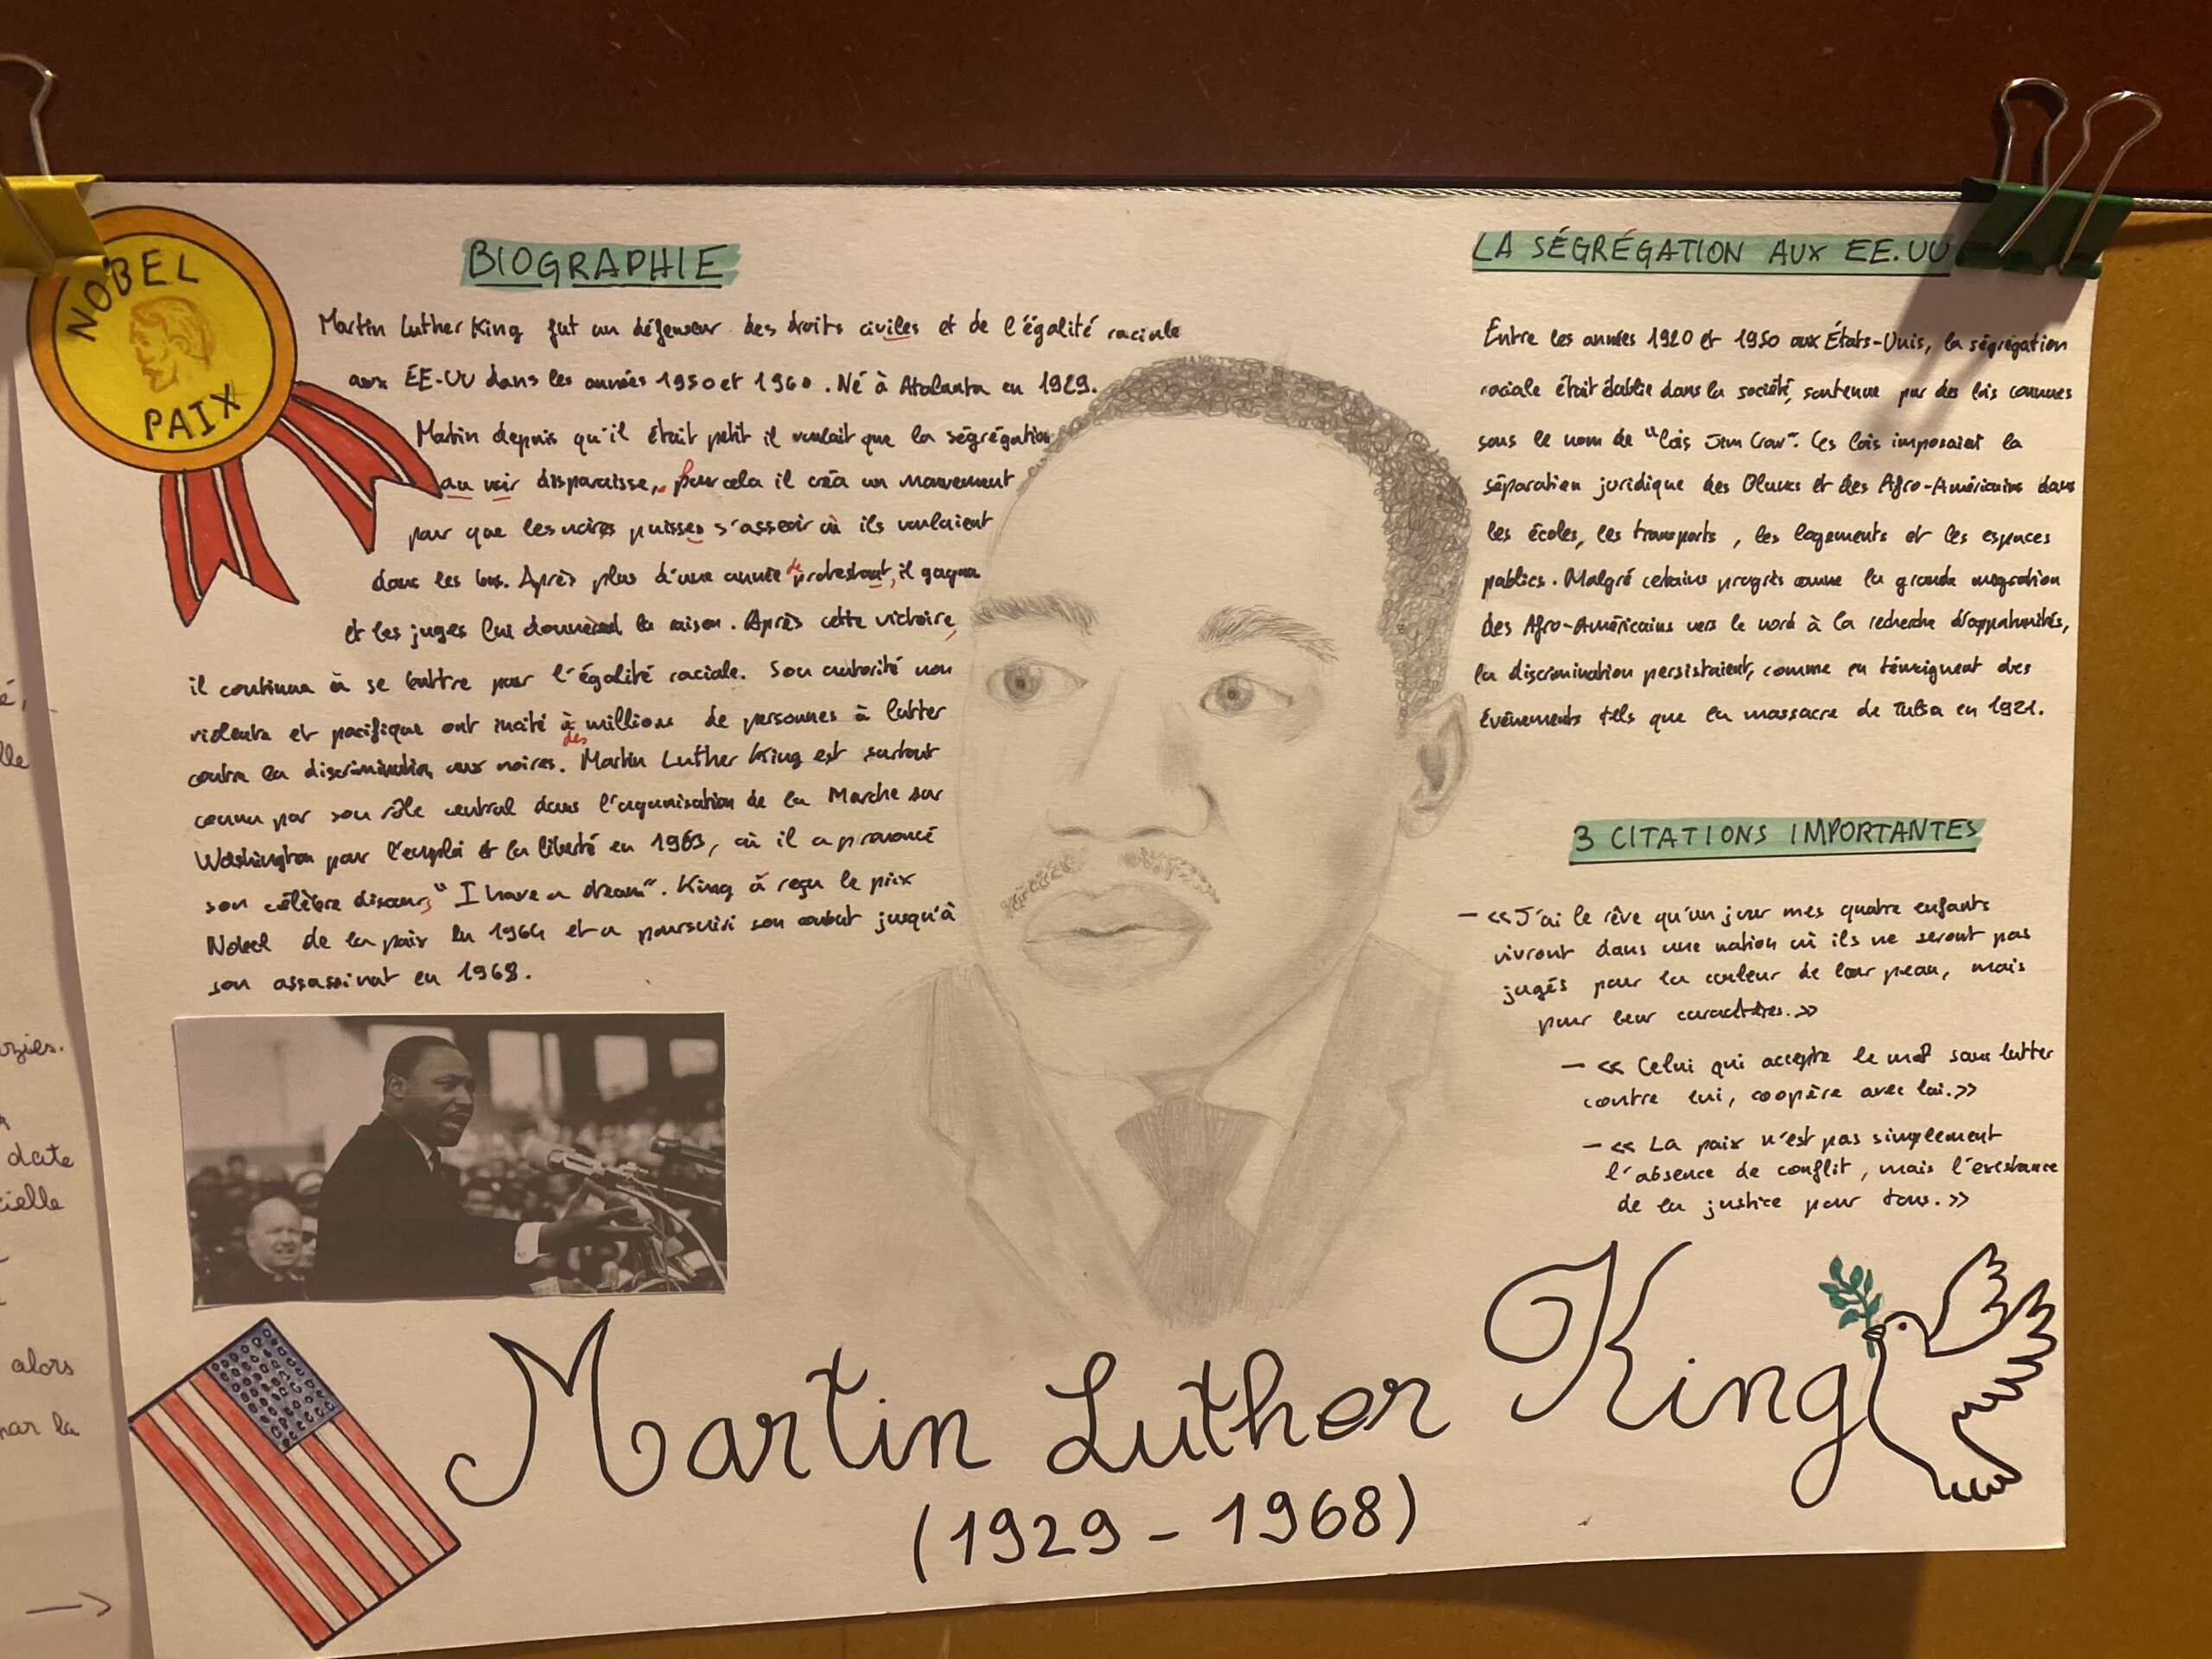 NOBEL
PAIX
BIOGRAPHIE
Martin Luther King fut un défenseur des droits civiles et de l'égalité raciale
aux EE-UU dans les années 1950 et 1960. Né à Atalanta en 1929.
Matin depuis qu'il était petit il voulait que la ségrégation
au noir disparaisse, pour cela il créa un mouvement
pour que les noires puisses s'asseoir où ils voulaient
dans les bus. Après plus d'une année de protestant, il gagna
et les juges lui donnèrent la raison. Après cette victoire,
il continua à se battre pour l'égalité raciale. Son autorité non
violente et pacifique ont incité à des millions de personnes à lutter
contre la discrimination aux noires. Martin Luther King est surtout
connu par son rôle central dans l'organisation de la Marche sur
Washington pour l'emploi et la liberté en 1963, où il a prononcé
son célèbre discours, "I have a dream". King à reçu le prix
Nobel de la paix en 1964 et a poursuivi son combat jusqu'à
son assassinat en 1968.
LA SÉGRÉGATION AUX EE.UU
Entre les années 1920 et 1950 aux États-Unis, la ségrégation
raciale était établie dans la société, soutenue par des lois connues
sous le nom de "lois Jim Crow". Ces lois imposaient la
séparation juridique des Blancs et des Afro-Américains dans
les écoles, les transports, les logements et les espaces
publics. Malgré certains progrès comme la grande migration
des Afro-Américains vers le nord à la recherche d'opportunités,
la discrimination persistaient, comme en témoignent des
événements tels que la massacre de Tulsa en 1921.
3 CITATIONS IMPORTANTES
- «J'ai le rêve qu'un jour mes quatre enfants
vivront dans une nation où ils ne seront pas
jugés pour la couleur de leur peau, mais
pour leur caractères.»
- « Celui qui accepte le mal sans lutter
contre lui, coopère avec lui.»
- « La paix n'est pas simplement
l'absence de conflit, mais l'existance
de la justice pour tous.»
Martin Luther King
(1929 - 1968)
date
alors
par la